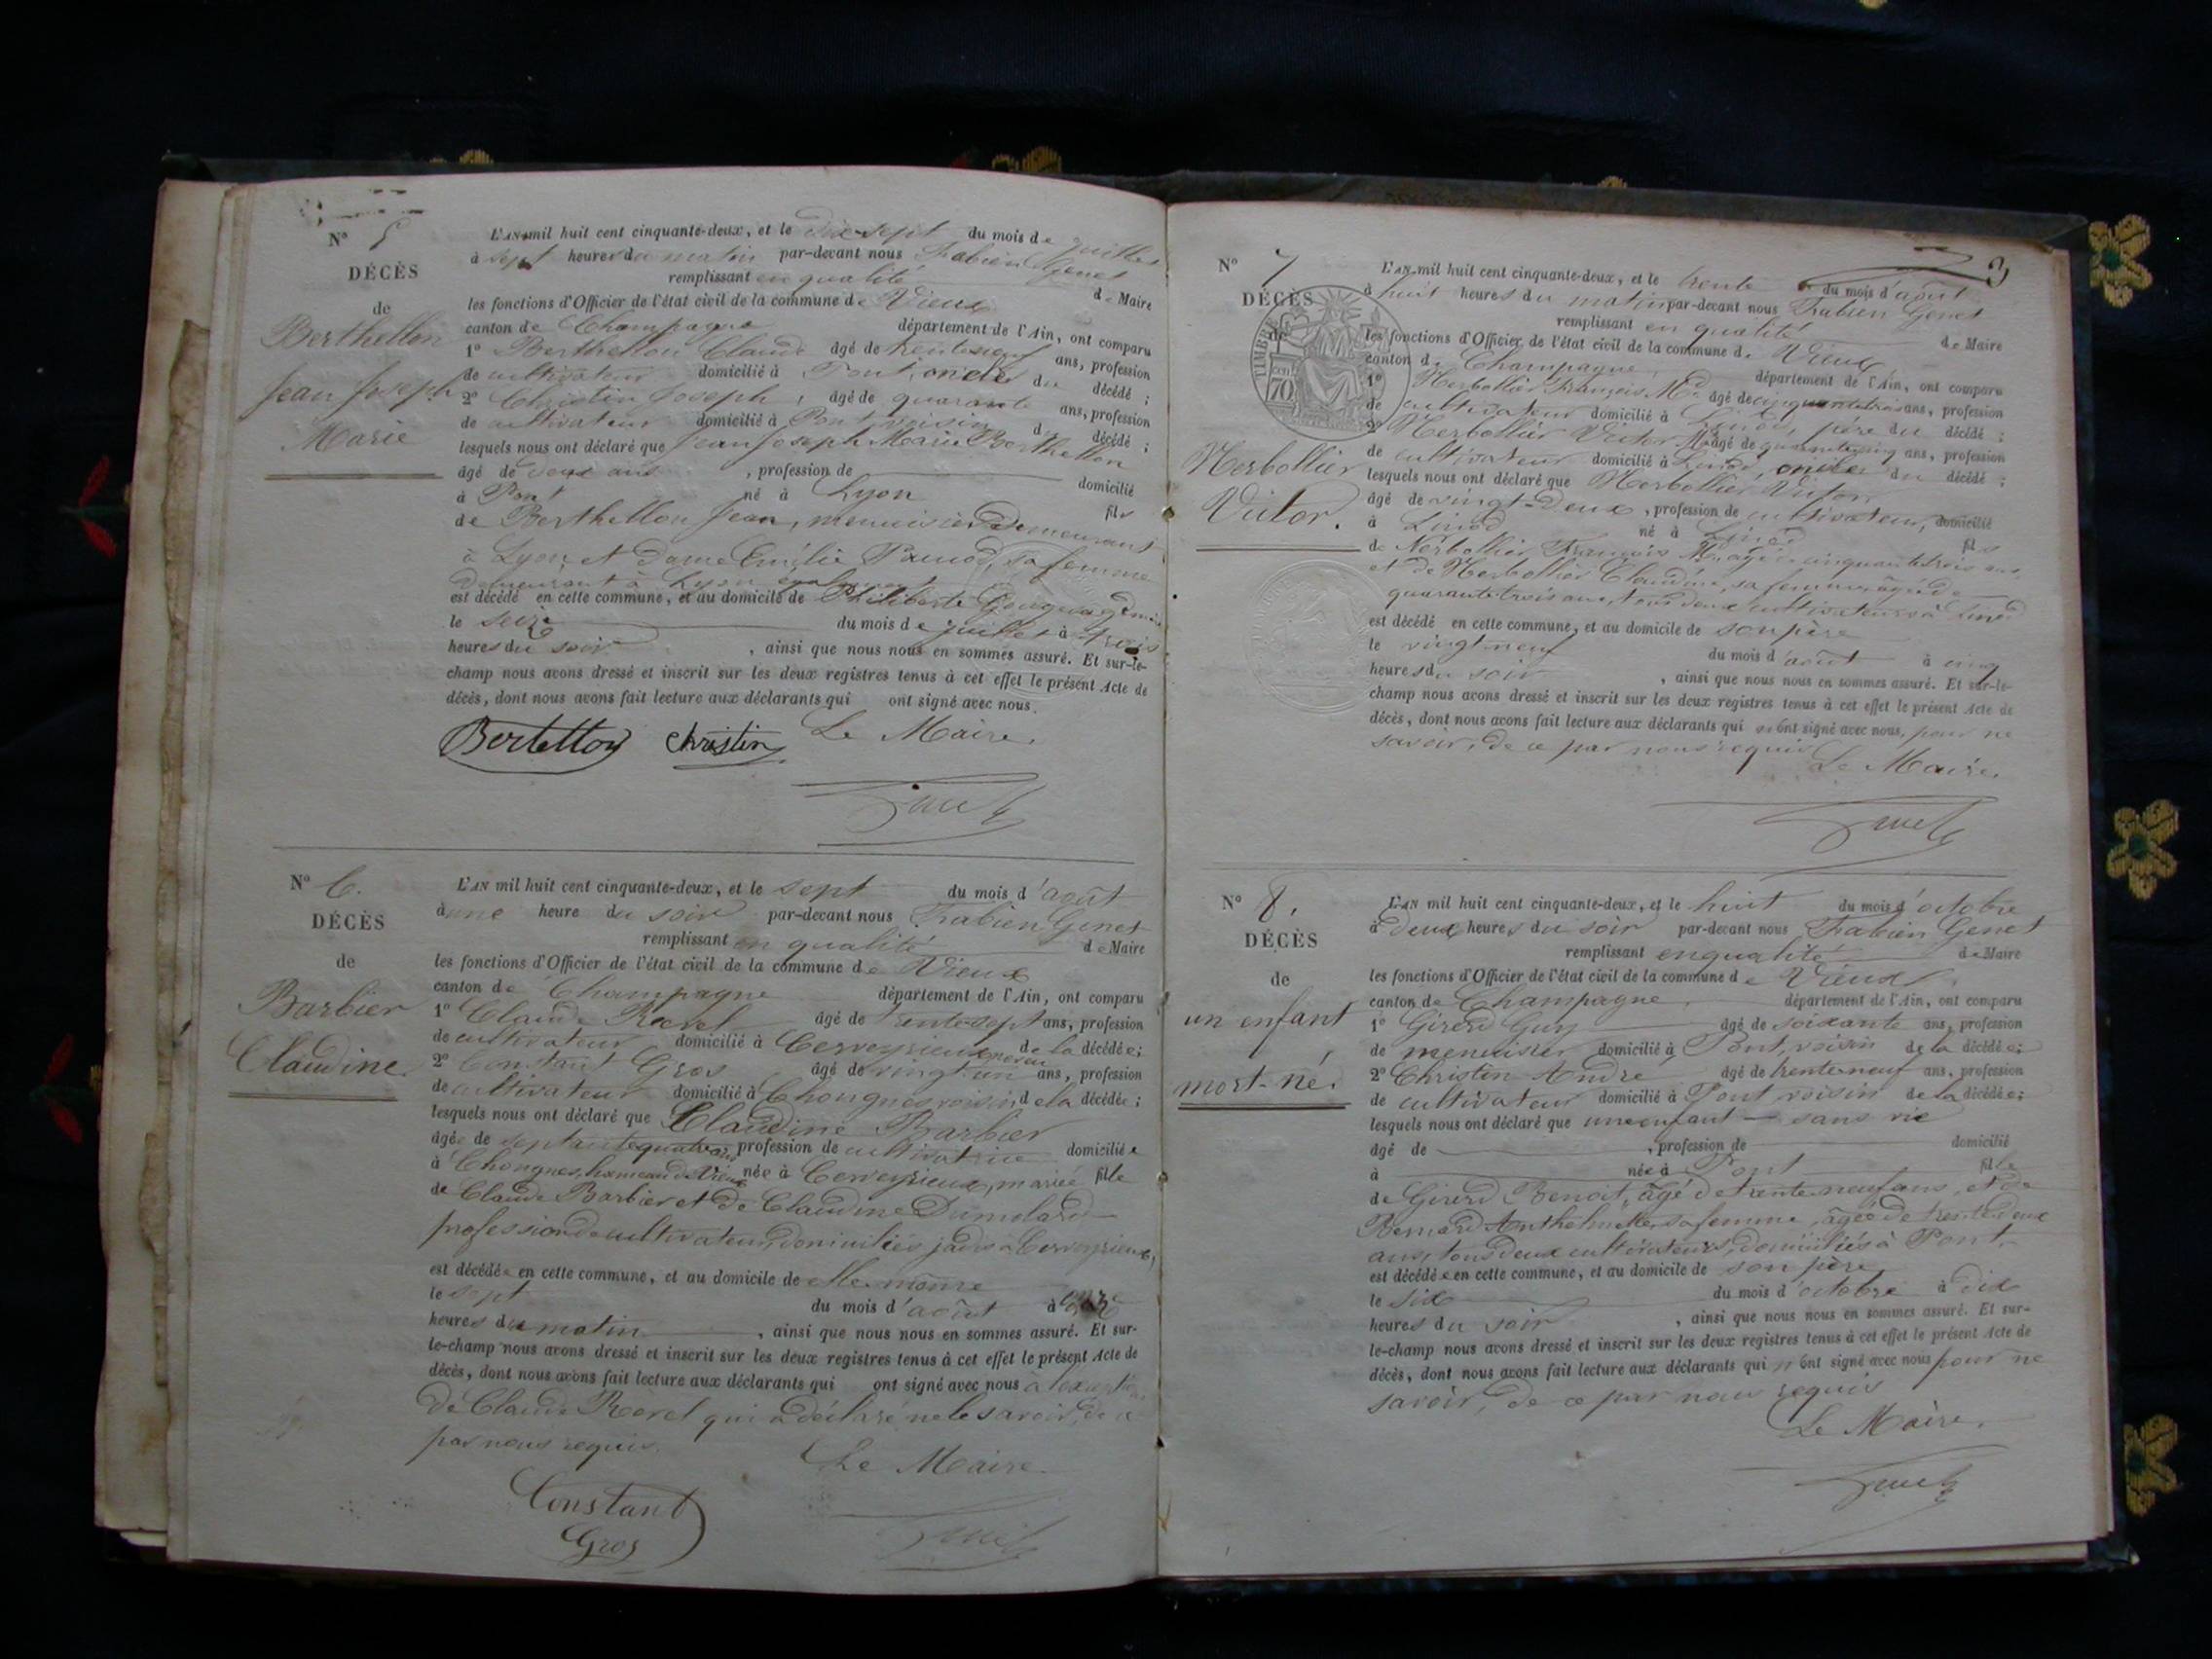 N° 5
DÉCÈS
de
Berthellon
Jean Joseph
Marie
L'AN mil huit cent cinquante-deux, et le dix-sept du mois de juillet
à sept heures du matin par-devant nous Fabien Genet
remplissant en qualité de Maire
les fonctions d'Officier de l'état civil de la commune de Vieux
canton de Champagne département de l'Ain, ont comparu
1° Berthellon Claude âgé de trente-neuf ans, profession
de cultivateur domicilié à Pont, oncle du décédé ;
2° Christin Joseph, âgé de quarante ans, profession
de cultivateur domicilié à Pont voisin du décédé ;
lesquels nous ont déclaré que Jean Joseph Marie Berthellon
âgé de deux ans , profession de domicilié
à Pont né à Lyon fils
de Berthellon Jean, menuisier demeurant
à Lyon, et dame Emélie sa femme
demeurant à Lyon également
est décédé en cette commune, et au domicile de Philiberte
le seize du mois de juillet à trois
heures du soir , ainsi que nous nous en sommes assuré. Et sur-le-
champ nous avons dressé et inscrit sur les deux registres tenus à cet effet le présent Acte de
décès, dont nous avons fait lecture aux déclarants qui ont signé avec nous.
Bertellon Christin Le Maire.
Genet
N° 6.
DÉCÈS
de
Barbier
Claudine
L'AN mil huit cent cinquante-deux, et le sept du mois d'août
à une heure du soir par-devant nous Fabien Genet
remplissant en qualité de Maire
les fonctions d'Officier de l'état civil de la commune de Vieux
canton de Champagne département de l'Ain, ont comparu
1° Claude Revel âgé de trente-sept ans, profession
de cultivateur domicilié à Cerveyrieux neveu de la décédée ;
2° Constant Gros âgé de vingt un ans, profession
de cultivateur domicilié à Chongnes voisin de la décédée ;
lesquels nous ont déclaré que Claudine Barbier
âgée de septante quatre ans profession de cultivatrice domiciliée
à Chongnes, hameau de Vieux née à Cerveyrieux, mariée fille
de Claude Barbier et de Claudine Dumolard
profession de cultivateurs, domiciliés jadis à Cerveyrieux,
est décédée en cette commune, et au domicile de elle-même
le sept du mois d'août à onze
heures du matin , ainsi que nous nous en sommes assuré. Et sur-
le-champ nous avons dressé et inscrit sur les deux registres tenus à cet effet le présent Acte de
décès, dont nous avons fait lecture aux déclarants qui ont signé avec nous à l'exception
de Claude Revel qui a déclaré ne le savoir, de ce
par nous requis.
Le Maire
Constant
Gros
Genet
3
N° 7
DÉCÈS
de
TIMBRE
70
Herbollier
Victor.
L'AN mil huit cent cinquante-deux, et le trente du mois d'août
à huit heures du matin par-devant nous Fabien Genet
remplissant en qualité de Maire
les fonctions d'Officier de l'état civil de la commune de Vieux
canton de Champagne, département de l'Ain, ont comparu
1° Herbollier François Mie âgé de cinquante trois ans, profession
de cultivateur domicilié à Linod, père du décédé ;
2° Herbollier Victor âgé de quarante cinq ans, profession
de cultivateur domicilié à Linod, oncle du décédé ;
lesquels nous ont déclaré que Herbollier Victor
âgé de vingt-deux , profession de cultivateur, domicilié
à Linod né à Linod fils
de Herbollier François M. âgé de cinquante trois ans,
et de Herbollier Claudine, sa femme, âgée de
quarante trois ans, tous deux cultivateurs à Linod
est décédé en cette commune, et au domicile de son père
le vingt-neuf du mois d'août à cinq
heures du soir , ainsi que nous nous en sommes assuré. Et sur-le-
champ nous avons dressé et inscrit sur les deux registres tenus à cet effet le présent Acte de
décès, dont nous avons fait lecture aux déclarants qui n'ont signé avec nous, pour ne
savoir, de ce par nous requis
Le Maire.
Genet
N° 8.
DÉCÈS
de
un enfant
mort-né.
L'AN mil huit cent cinquante-deux, et le huit du mois d'octobre
à deux heures du soir par-devant nous Fabien Genet
remplissant en qualité de Maire
les fonctions d'Officier de l'état civil de la commune de Vieux
canton de Champagne, département de l'Ain, ont comparu
1° Girerd Guy âgé de soixante ans, profession
de menuisier domicilié à Pont, voisin de la décédée ;
2° Christin André âgé de trente neuf ans, profession
de cultivateur domicilié à Pont voisin de la décédée ;
lesquels nous ont déclaré que une enfant sans vie
âgé de , profession de domicilié
à née à Pont fille
de Girerd Benoit, âgé de trente neuf ans, et de
Bernard Anthelmette, sa femme, âgée de trente deux
ans, tous deux cultivateurs, domiciliés à Pont.
est décédée en cette commune, et au domicile de son père
le six du mois d'octobre à dix
heures du soir , ainsi que nous nous en sommes assuré. Et sur-
le-champ nous avons dressé et inscrit sur les deux registres tenus à cet effet le présent Acte de
décès, dont nous avons fait lecture aux déclarants qui n'ont signé avec nous pour ne
savoir, de ce par nous requis
Le Maire.
Genet